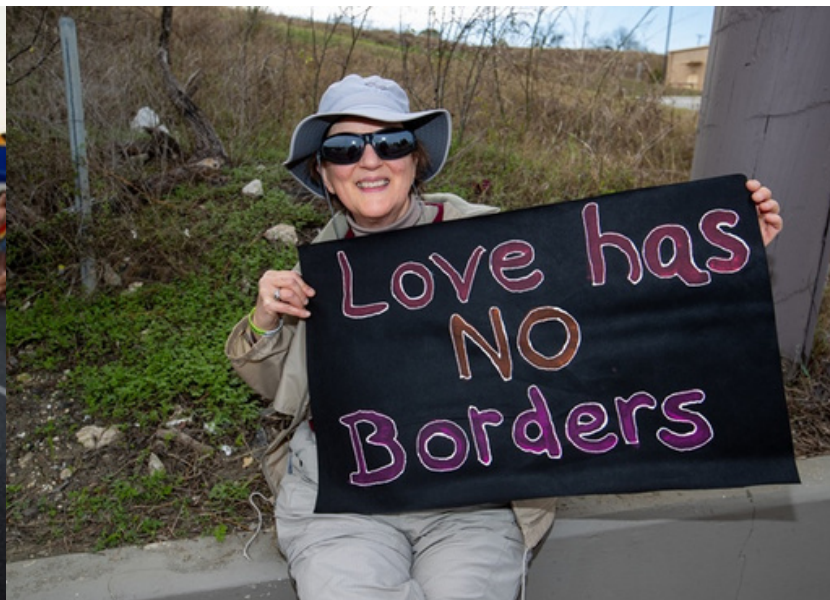 Love has
NO
Borders